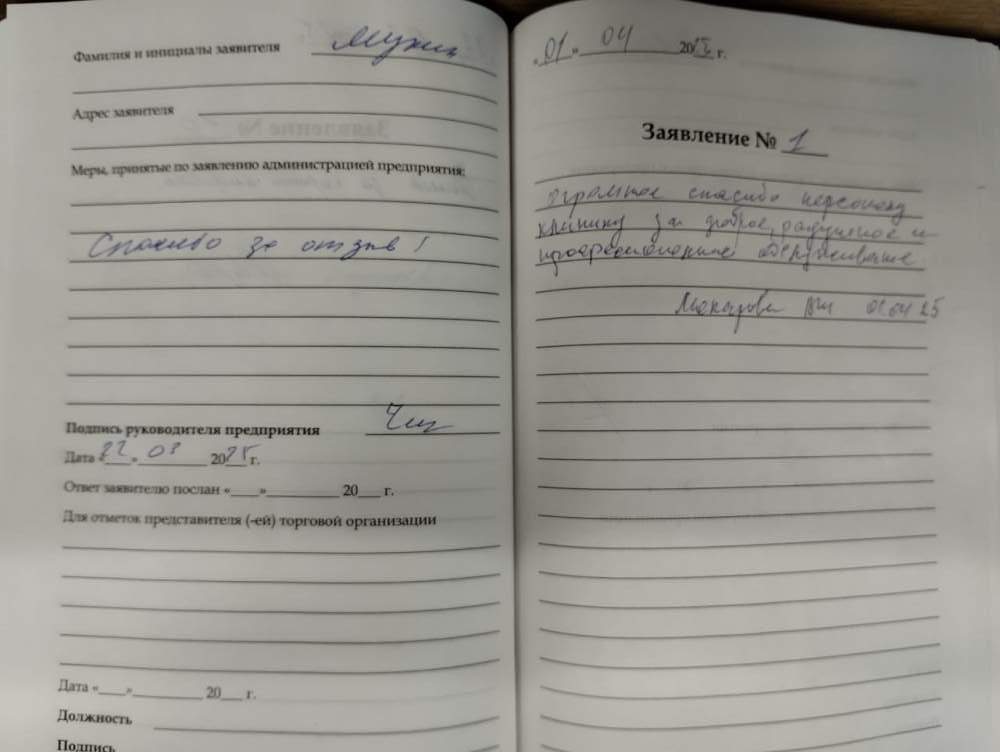 Фамилия и инициалы заявителя
Адрес заявителя
Меры, принятые по заявлению администрацией предприятия:
Спасибо за отзыв!
Подпись руководителя предприятия
Дата «22» 03 2025 г.
Ответ заявителю послан «___»__________ 20___ г.
Для отметок представителя (-ей) торговой организации
Дата «___»__________ 20___ г.
Должность
Подпись
«01» 04 2025 г.
Заявление № 1
огромное спасибо персоналу
клиники за доброе, радушное и
профессиональное обслуживание
Макарова 01.04 25